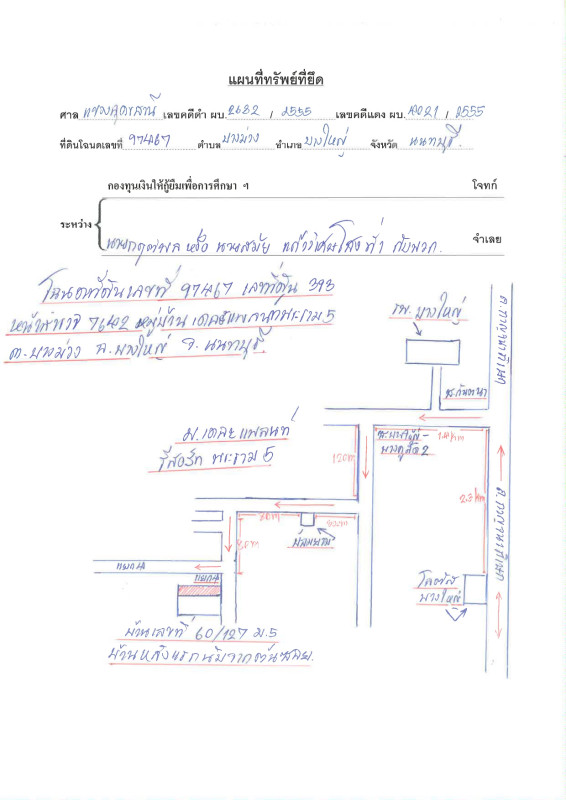 แผนที่ทรัพย์ที่ยึด
ศาล แขวงอุดรธานี เลขคดีดำ ผบ. 2632 / 2555 เลขคดีแดง ผบ. / 2555
ที่ดินโฉนดเลขที่ 97467 ตำบล บางม่วง อำเภอ บางใหญ่ จังหวัด นนทบุรี.
กองทุนเงินให้กู้ยืมเพื่อการศึกษา ฯ โจทก์
ระหว่าง
หรือ นายสมัย กับพวก. จำเลย
โฉนดที่ดินเลขที่ 97467 เลขที่ดิน 393
หน้าสำรวจ 7642 หมู่บ้าน เดอะแพลนท์พระราม 5
ต.บางม่วง อ.บางใหญ่ จ.นนทบุรี
รพ. บางใหญ่
ถ.กาญจนาภิเษก
ซ.กันตนา
ม.เดอะแพลนท์
รีสอร์ท พระราม 5
ซ.บางใหญ่ -
บางคูลัด 2
120m
2.3 km
ถ.กาญจนาภิเษก
80m
90m
ป้อมยาม
แยก 4
โลตัส
บางใหญ่
บ้านเลขที่ 60/127 ม.5
บ้านหลังแรกนับจากต้นซอย.